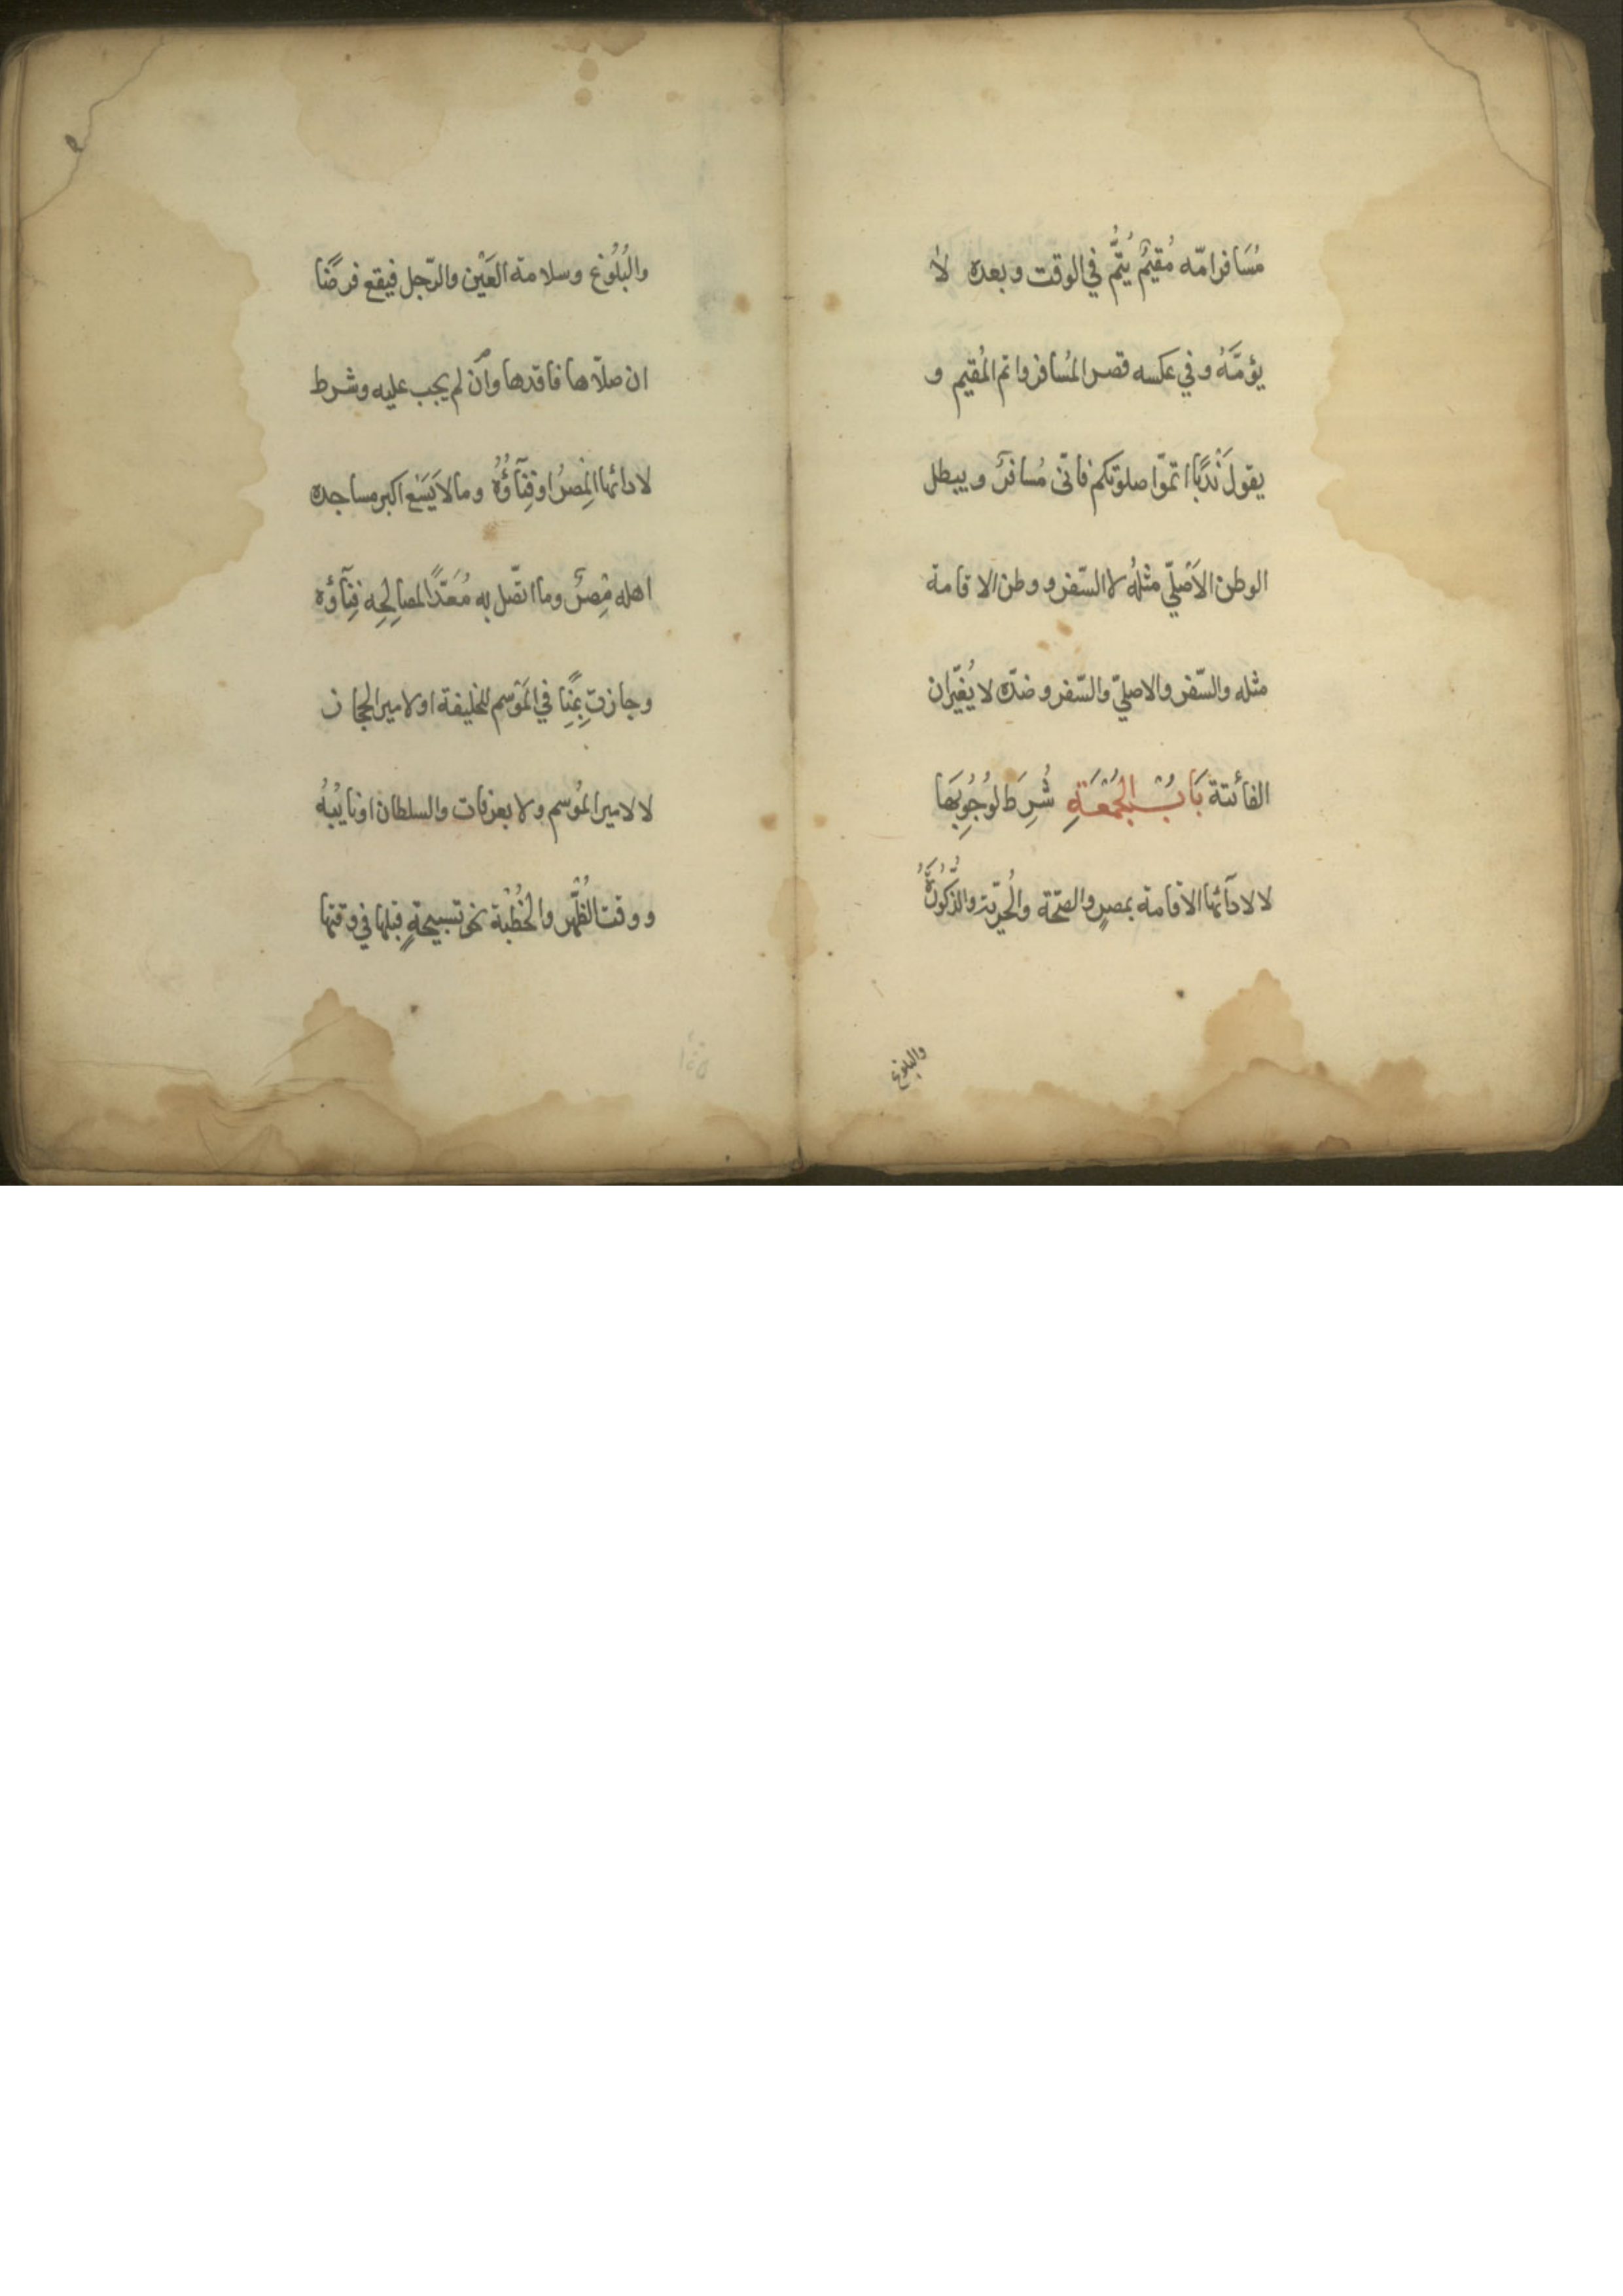 مُسَافر امّه مُقيمٌ يُتمُّ في الوقت وبعده لا
يؤمّهُ وفي عكسه قصر المُسافر واتم المُقيم و
يقول نَدْبًا اتمّوا صلوتكم فانّى مُسافرٌ ويبطل
الوطن الاَصْلِيّ مثلهُ لا السّفر ووطن الاقامة
مثله والسّفر والاصليّ والسّفر وضدّه لا يُغيّران
الفائتة بَابُ الجُمُعَةِ شُرِطَ لوُجُوبِهَا
لا لادآئها الاقامة بمصرٍ والصّحّة والحُرّيّة والذُّكُورَةُ
والبلوغ
والبُلُوْغ وسلامة العَيْن والرّجل فيقع فرضًا
ان صلاّها فاقدها وان لم يجب عليه وشرط
لادائها المِصْرُ او فِنَآؤُهُ وما لا يَسَع اكبر مساجده
اهله مِصْرٌ وما اتّصل به مُعَدًّا لمصالِحِه فِنَآؤه
وجازت بِمِنًا في المَوْسِم للخليفة او لامير الحجاز
لا لامير المَوْسم ولا بعرفات والسلطان او نايبُهُ
ووقت الظُّهْر والخُطْبة نحو تسبيحةٍ قبلها في وقتها